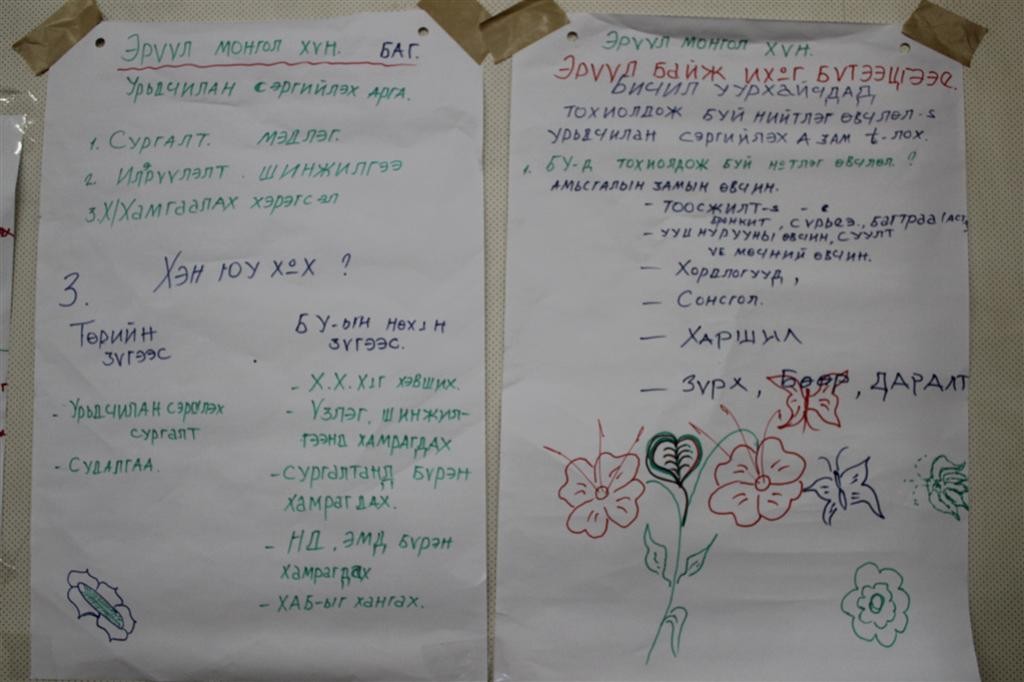 Эрүүл монгол хүн. баг.
Урьдчилан сэргийлэх арга.
1. Сургалт. мэдлэг.
2. Илрүүлэлт. шинжилгээ
3. Х/Хамгаалах хэрэгсэл
3. Хэн юу хох ?
Төрийн зүгээс
- Урьдчилан сэргйлэх
сургалт
- Судалгаа.
БУ-ын нөхөн
зүгээс.
- Х.Х.Х-г хэвших.
- Үзлэг, шинжил-
гээнд хамрагдах
- сургалтанд бүрэн
хамрагдах.
- НД, ЭМД бүрэн
хамрагдах
- ХАБ-ыг хангах.
Эрүүл монгол хүн.
Эрүүл байж их-г бүтээцгээе.
Бичил уурхайчдад
тохиолдож буй нийтлэг өвчлөл-s
урьдчилан сэргийлэх А зам t-лох.
1. БУ-д тохиолдож буй н-тлэг өвчлөл ?
амьсгалын замын өвчин.
- тоосжилт-s
бронхит, сүрьеэ, багтраа (аст
- ууц нурууны өвчин, суулт
үе мөчний өвчин.
- Хордлогууд,
- Сонсгол.
- Харшил
- Зүрх, Бөөр, даралт